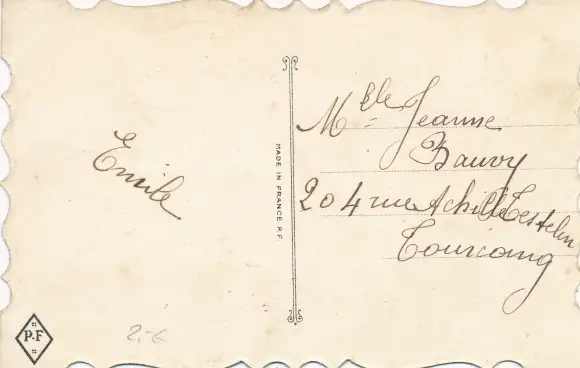 Emile
MADE IN FRANCE P.F
P-F
2,-€
Mlle Jeanne
Bauvy
204 rue Achille Testelin
Tourcoing